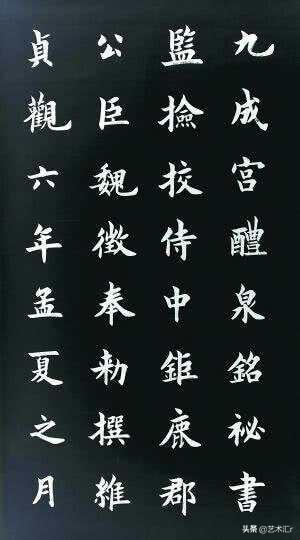 九成宮醴泉銘祕書
監撿挍侍中鉅鹿郡
公臣魏徵奉勅撰維
貞觀六年孟夏之月
头条 @艺术汇r